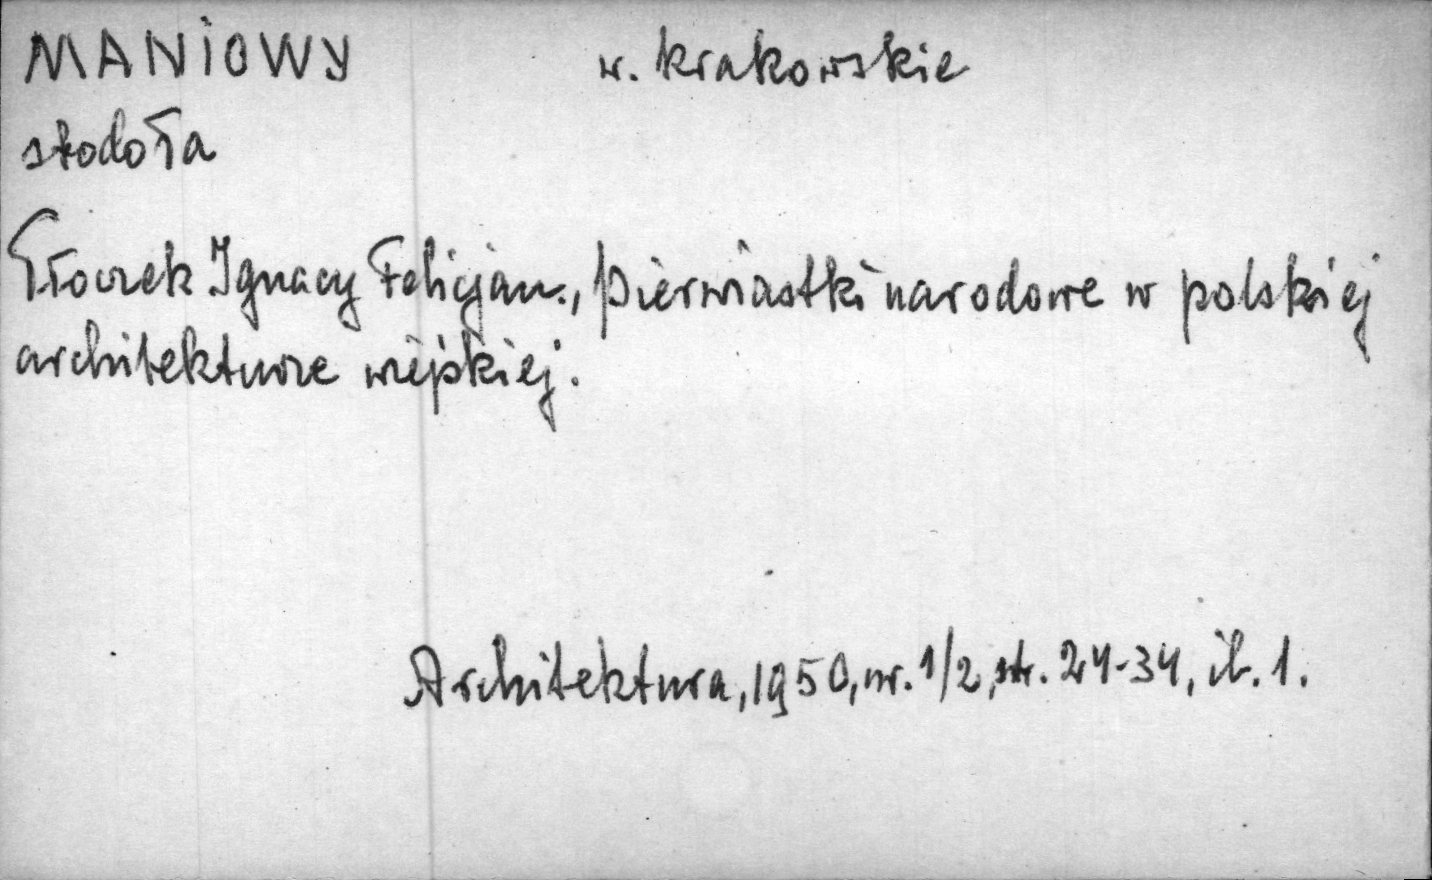 MANIOWY w. krakowskie
stodoła
Tłoczek Ignacy Felicjan., Pierwiastki narodowe w polskiej
architekturze wiejskiej.
Architektura, 1950, nr. 1/2, str. 24-34, il. 1.